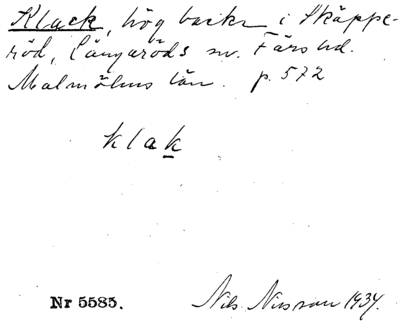 Klack, hög backe i Skäppe-
röd, Långaröds sn. Färs hd.
Malmöhus län. p. 572
klak
Nr 5583. Nils Nilsson 1934.